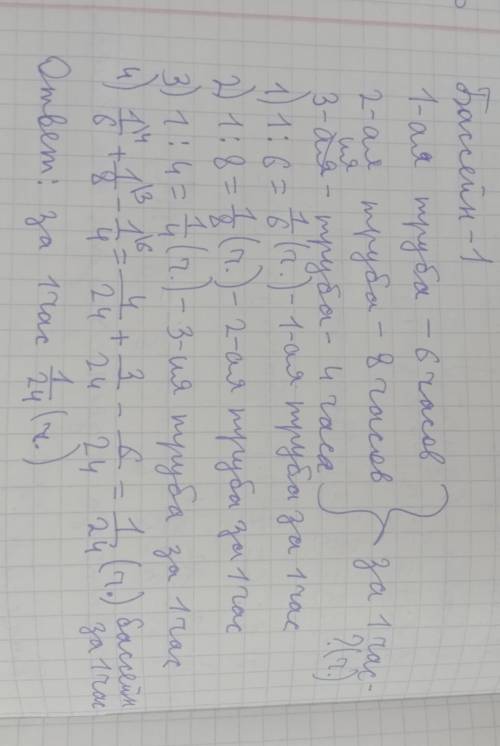 Бассейн - 1
1-ая труба - 6 часов
2-ая труба - 8 часов } за 1 час -
3-ая ия - труба - 4 часа ? (ч.)
1) 1 : 6 = 1/6 (ч.) - 1-ая труба за 1 час
2) 1 : 8 = 1/8 (ч.) - 2-ая труба за 1 час
3) 1 : 4 = 1/4 (ч.) - 3-ия труба за 1 час
4) 1\4/6 + 1\3/8 - 1\6/4 = 4/24 + 3/24 - 6/24 = 1/24 (ч.) бассейн за 1 час
Ответ: за 1 час 1/24 (ч.)